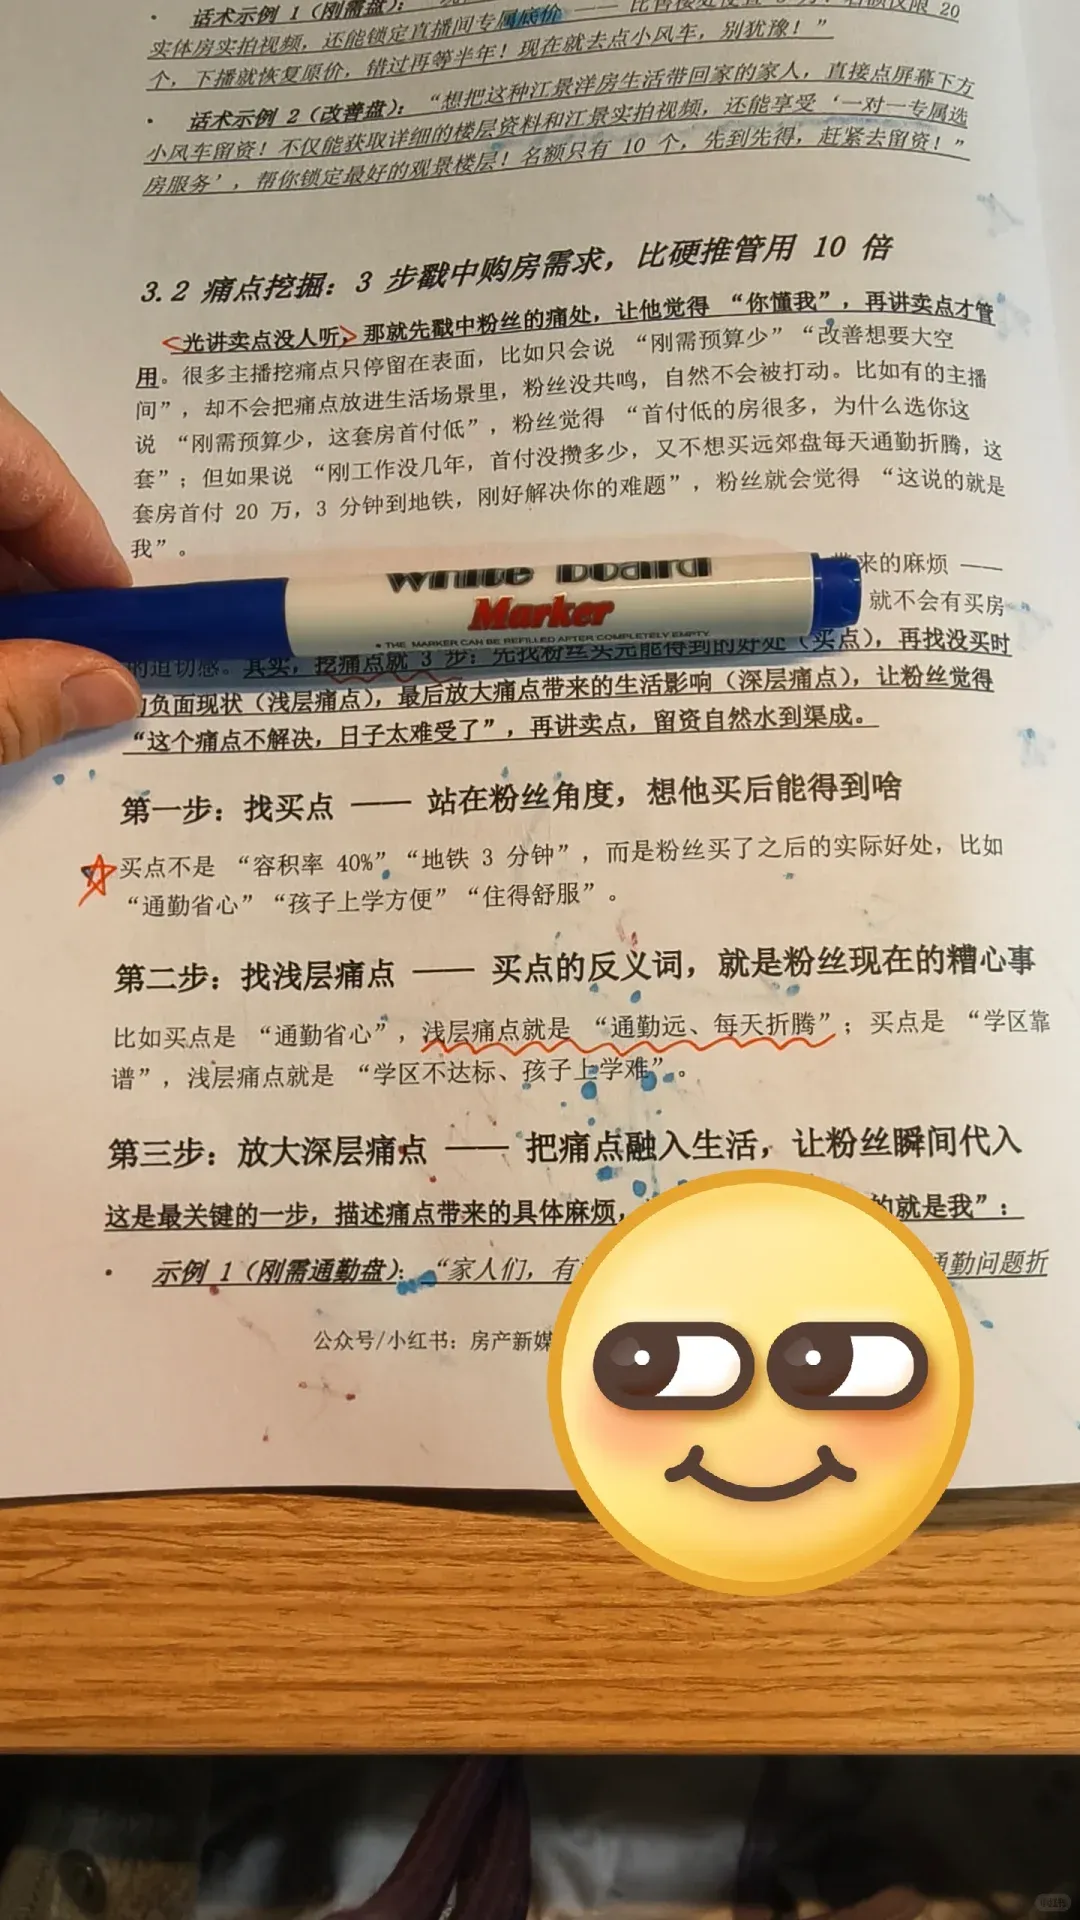 话术示例 1（刚需盘）：
实体房实拍视频，还能锁定直播间专属底价 ——
20
个，下播就恢复原价，错过再等半年！现在就去点小风车，别犹豫！”
· 话术示例 2（改善盘）：“想把这种江景洋房生活带回家的家人，直接点屏幕下方
小风车留资！不仅能获取详细的楼层资料和江景实拍视频，还能享受‘一对一专属选
房服务’，帮你锁定最好的观景楼层！名额只有 10 个，先到先得，赶紧去留资！”
3.2 痛点挖掘：3 步戳中购房需求，比硬推管用 10 倍
光讲卖点没人听，那就先戳中粉丝的痛处，让他觉得 “你懂我”，再讲卖点才管
用。很多主播挖痛点只停留在表面，比如只会说 “刚需预算少”“改善想要大空
间”，却不会把痛点放进生活场景里，粉丝没共鸣，自然不会被打动。比如有的主播
说 “刚需预算少，这套房首付低”，粉丝觉得 “首付低的房很多，为什么选你这
套”；但如果说 “刚工作没几年，首付没攒多少，又不想买远郊盘每天通勤折腾，这
套房首付 20 万，3 分钟到地铁，刚好解决你的难题”，粉丝就会觉得 “这说的就是
我”。
带来的麻烦 ——
就不会有买房
White Board
Marker
* THE MARKER CAN BE REFILLED AFTER COMPLETELY EMPTY
的迫切感。其实，挖痛点就 3 步：先找粉丝买完能得到的好处（买点），再找没买时
负面现状（浅层痛点），最后放大痛点带来的生活影响（深层痛点），让粉丝觉得
“这个痛点不解决，日子太难受了”，再讲卖点，留资自然水到渠成。
第一步：找买点 —— 站在粉丝角度，想他买后能得到啥
买点不是 “容积率 40%”“地铁 3 分钟”，而是粉丝买了之后的实际好处，比如
“通勤省心”“孩子上学方便”“住得舒服”。
第二步：找浅层痛点 —— 买点的反义词，就是粉丝现在的糟心事
比如买点是 “通勤省心”，浅层痛点就是 “通勤远、每天折腾”；买点是 “学区靠
谱”，浅层痛点就是 “学区不达标、孩子上学难”。
第三步：放大深层痛点 —— 把痛点融入生活，让粉丝瞬间代入
这是最关键的一步，描述痛点带来的具体麻烦，
的就是我”：
· 示例 1（刚需通勤盘）：“家人们，有
通勤问题折
公众号/小红书：房产新媒